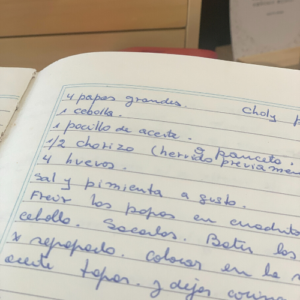 4 papas grandes. Choly
1 cebolla.
1 pocillo de aceite.
ó panceta.
1/2 chorizo (hervido previamen
4 huevos.
Sal y pimienta a gusto.
Freir los papas en cuadrit
cebolla. Sacarlos. Batir los
x separado. colocar en la
aceite tapar. y dejar